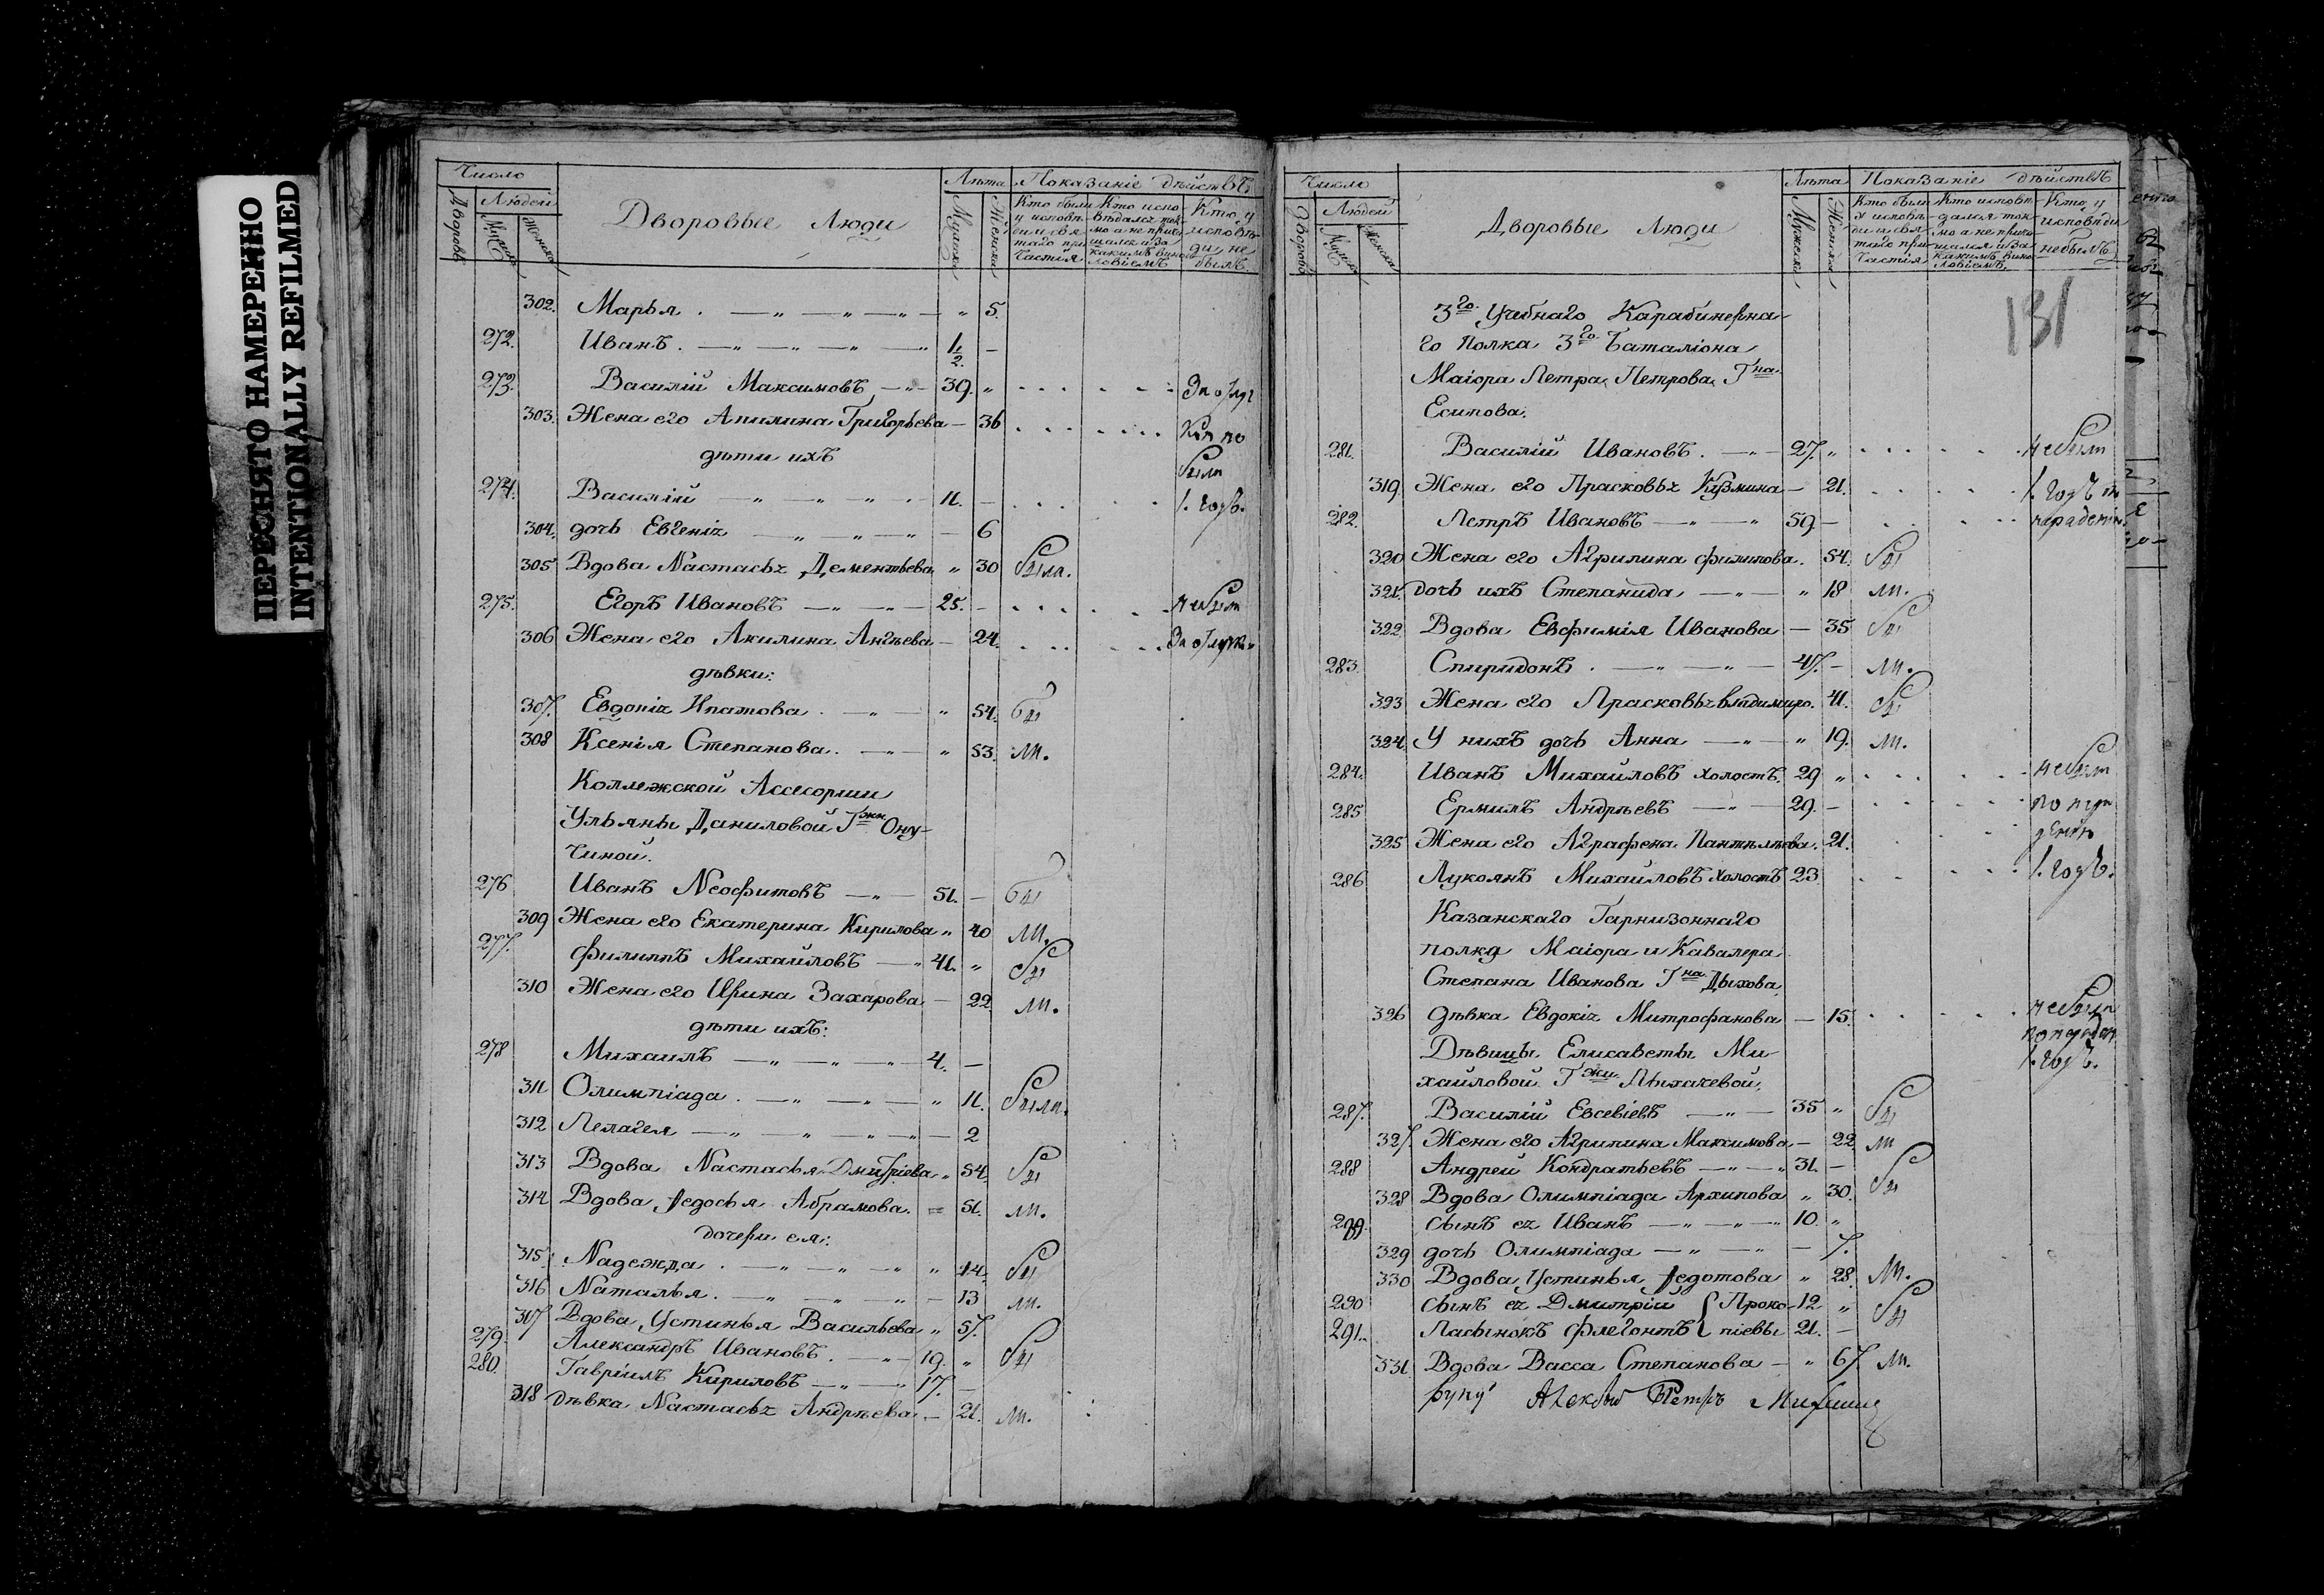 ПЕРЕСНЯТО НАМЕРЕННО
INTENTIONALLY REFILMED
Число
Людей
Дворовъ
Дворовые Люди
Лѣта
Мужеска
Женска
Показаніе дѣйствъ
Кто были
у исповѣ-
ди и свя
таго при
частія
Кто испо
вѣдался ток
мо а не прича
щался и за
какимъ вино
ловіемъ
Кто у
исповѣ
ди не
былъ
302. Марья . — „ — „ — „ — „ 5.
272. Иванъ . — „ — „ — „ — „ 1/2. —
273. Василій Максимовъ — „ — 39. „
303. Жена его Акилина Григорьева — 36
дѣти ихъ
274. Василій — „ — „ — „ — 11. — 1. годъ.
304. дочь Евгенія — „ — „ — „ — 6
305 Вдова Настасья Дементьева „ 30 была.
275. Егоръ Ивановъ — „ — „ — 25. — не были
306 Жена его Акилина Ангѣева — 24.
дѣвки:
307. Евдокія Ипатова . — „ — „ 54. бы
308 Ксенія Степанова . — „ — „ 53. ли.
Коллежской Ассесорши
Ульяны Даниловой Гжи Ону-
чиной.
276 Иванъ Неофитовъ — „ — 51. — бы
309 Жена его Екатерина Кирилова „ 40 ли.
277. Филиппъ Михайловъ — „ 41. „ бы
310 Жена его Ирина Захарова — 22. ли.
дѣти ихъ:
278 Михаилъ — „ — „ — „ — 4. —
311 Олимпіада . — „ — „ — „ 11. была.
312 Пелагея — „ — „ — „ — „ — 2
313 Вдова Настасья Дмитріева „ 54. бы
314 Вдова Федосья Абрамова. — 51. ли.
дочери ея:
315. Надежда . — „ — „ — „ „ 14. бы
316 Наталья . — „ — „ — „ — 13 ли.
317 Вдова Устинья Васильева „ 57.
279. Александръ Ивановъ . — „ — 19. „ бы
280. Гавріилъ Кириловъ — „ — „ 17. —
318 дѣвка Настасья Андрѣева — 21. ли.
Число
Людей
Дворовъ
Мужеска
Женска
Дворовые Люди
Лѣта
Мужеска
Женска
Показаніе дѣйствъ
Кто были
у исповѣ-
ди и свя-
таго при-
частія
Кто исповѣ
дался ток-
мо а не прича
щался и за
какимъ вино
ловіемъ
Кто у
исповѣди
небылъ
131
3го Учебнаго Карабинерна-
го Полка 3го Баталіона
Маіора Петра Петрова Гна
Есипова.
281. Василій Ивановъ . — „ — 27. „ не были
319. Жена его Прасковья Кузмина — 21. 1. годъ по
282. Петръ Ивановъ — „ — „ 59. — нераденію
320 Жена его Агрипина Филипова. 54. бы
321. дочь ихъ Степанида — „ — „ 18 ли.
322 Вдова Евфимія Иванова — 35 бы
283. Спиридонъ . — „ — „ — 47. — ли.
323 Жена его Прасковья Владимиро. 41. бы
324. У нихъ дочь Анна — „ — „ 19. ли.
284. Иванъ Михайловъ холостъ. 29 „ не были
285 Ермилъ Андрѣевъ — „ — 29. — по нера
325 Жена его Аграфена Пантелѣева. 21. денію
286 Лукоянъ Михайловъ Холостъ 23. 1. годъ.
Казанскаго Гарнизоннаго
полка Маіора и Кавалера
Степана Иванова Гна Дыхова
326 дѣвка Евдокія Митрофанова — 15. не была
по нераден
Дѣвицы Елисаветы Ми- 1. годъ.
хайловой Гжи Лихачевой.
287. Василій Евсевіевъ — „ — 35 „ бы
327. Жена его Агрипина Максимова — 22. ли
288 Андрей Кондратьевъ — „ — „ 31. —
328 Вдова Олимпіада Архипова „ 30. бы
289. сынъ ея Иванъ — „ — „ — 10. „
329 дочь Олимпіада — „ — „ — 7.
330 Вдова Устинья Федотова „ 28. ли.
290 сынъ ея Дмитрій { Проко- 12 „ бы
291. Пасынокъ Флегонтъ { піевы 21. —
331. Вдова Васса Степанова — „ 67 ли.